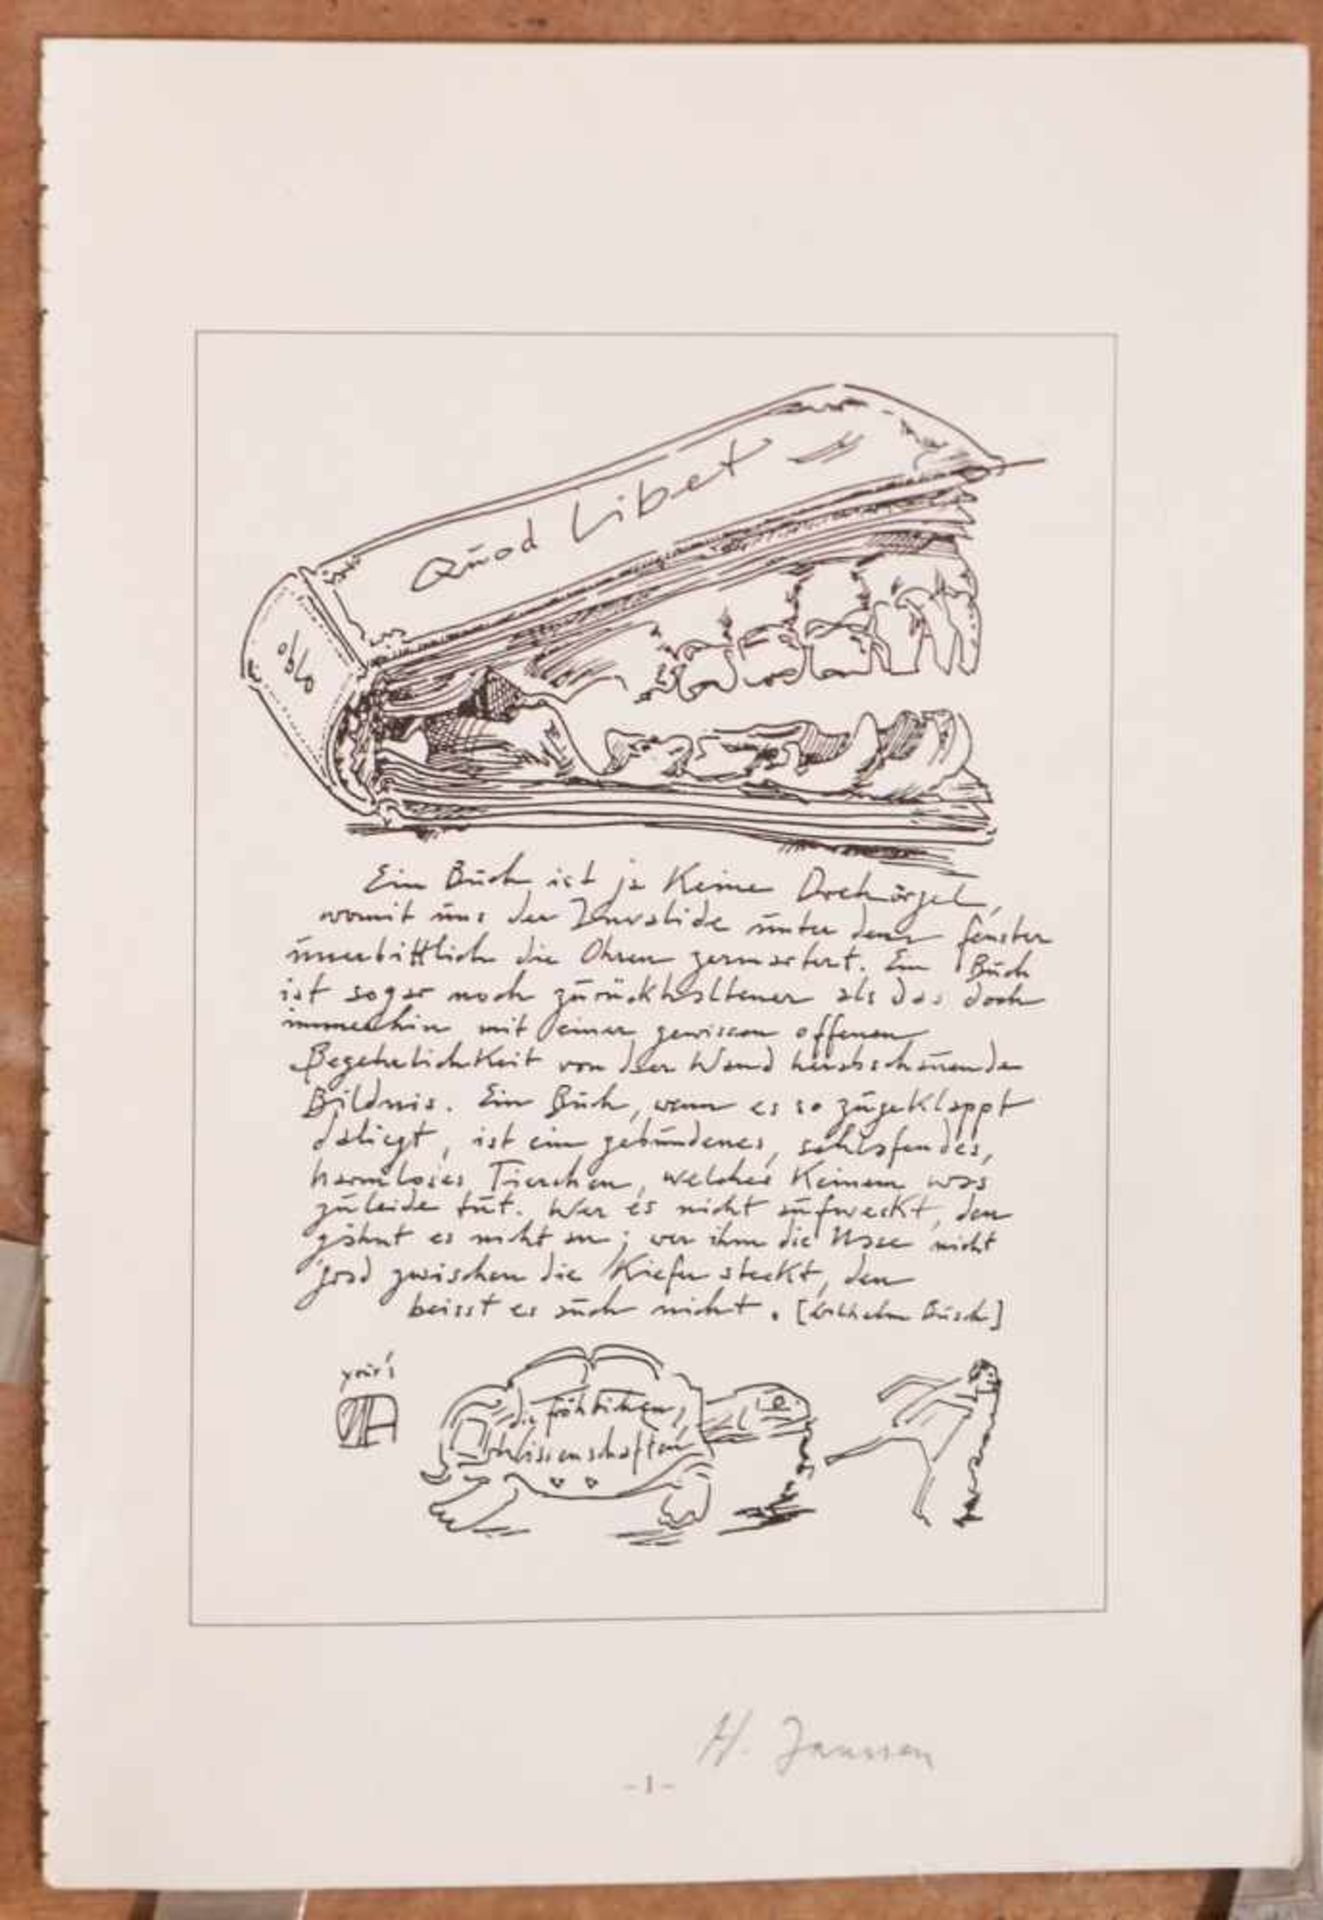 Quod Libet
%
Ein Buch ist ja Keine Drehorgel,
womit uns der Invalide unter dem Fenster
unerbittlich die Ohren zermartert. Ein Buch
ist sogar noch zurückhaltener als das doch
immerhin mit einer gewissen offenen
Begehrlichkeit von der Wand herabschauende
Bildnis. Ein Buch, wenn es so zugeklappt
daliegt, ist ein gebundenes, schlafendes,
harmloses Tierchen, welches Keinem was
zuleide tut. Wer es nicht aufweckt, den
gähnt es nicht an; wer ihm die Nase nicht
grad zwischen die Kiefer steckt, den
beisst es auch nicht. [Wilhelm Busch]
your's
die fröhlichen
Wissenschaften
H. Janssen
- 1 -